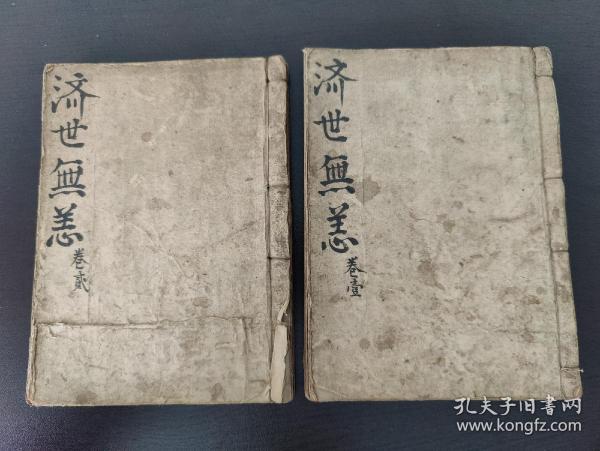 济世無恙
卷貳
济世無恙
卷壹
孔夫子旧书网
www.kongfz.com